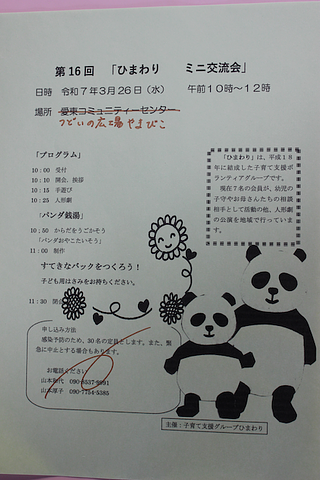 第16回 「ひまわり ミニ交流会」
日時 令和7年3月26日(水) 午前10時～12時
場所 愛東コミュニティーセンター
つどいの広場 やまびこ
「プログラム」
10:00 受付
10:10 開会、挨拶
10:15 手遊び
10:25 人形劇
「パンダ銭湯」
10:50 からだをうごかそう
「パンダおやこたいそう」
11:00 制作
すてきなバックをつくろう！
子ども用はさみをお持ちください。
11:30 閉会
「ひまわり」は、平成18
年に結成した子育て支援ボ
ランティアグループです。
現在7名の会員が、幼児の
子守やお母さんたちの相談
相手として活動の他、人形劇
の公演を地域で行っていま
す。
申し込み方法
感染予防のため、30名の定員とします。また、緊
急に中止とする場合もあります。
お電話ください
山本 代 090-8537-9891
山本厚子 090-7754-5385
主催：子育て支援グループひまわり